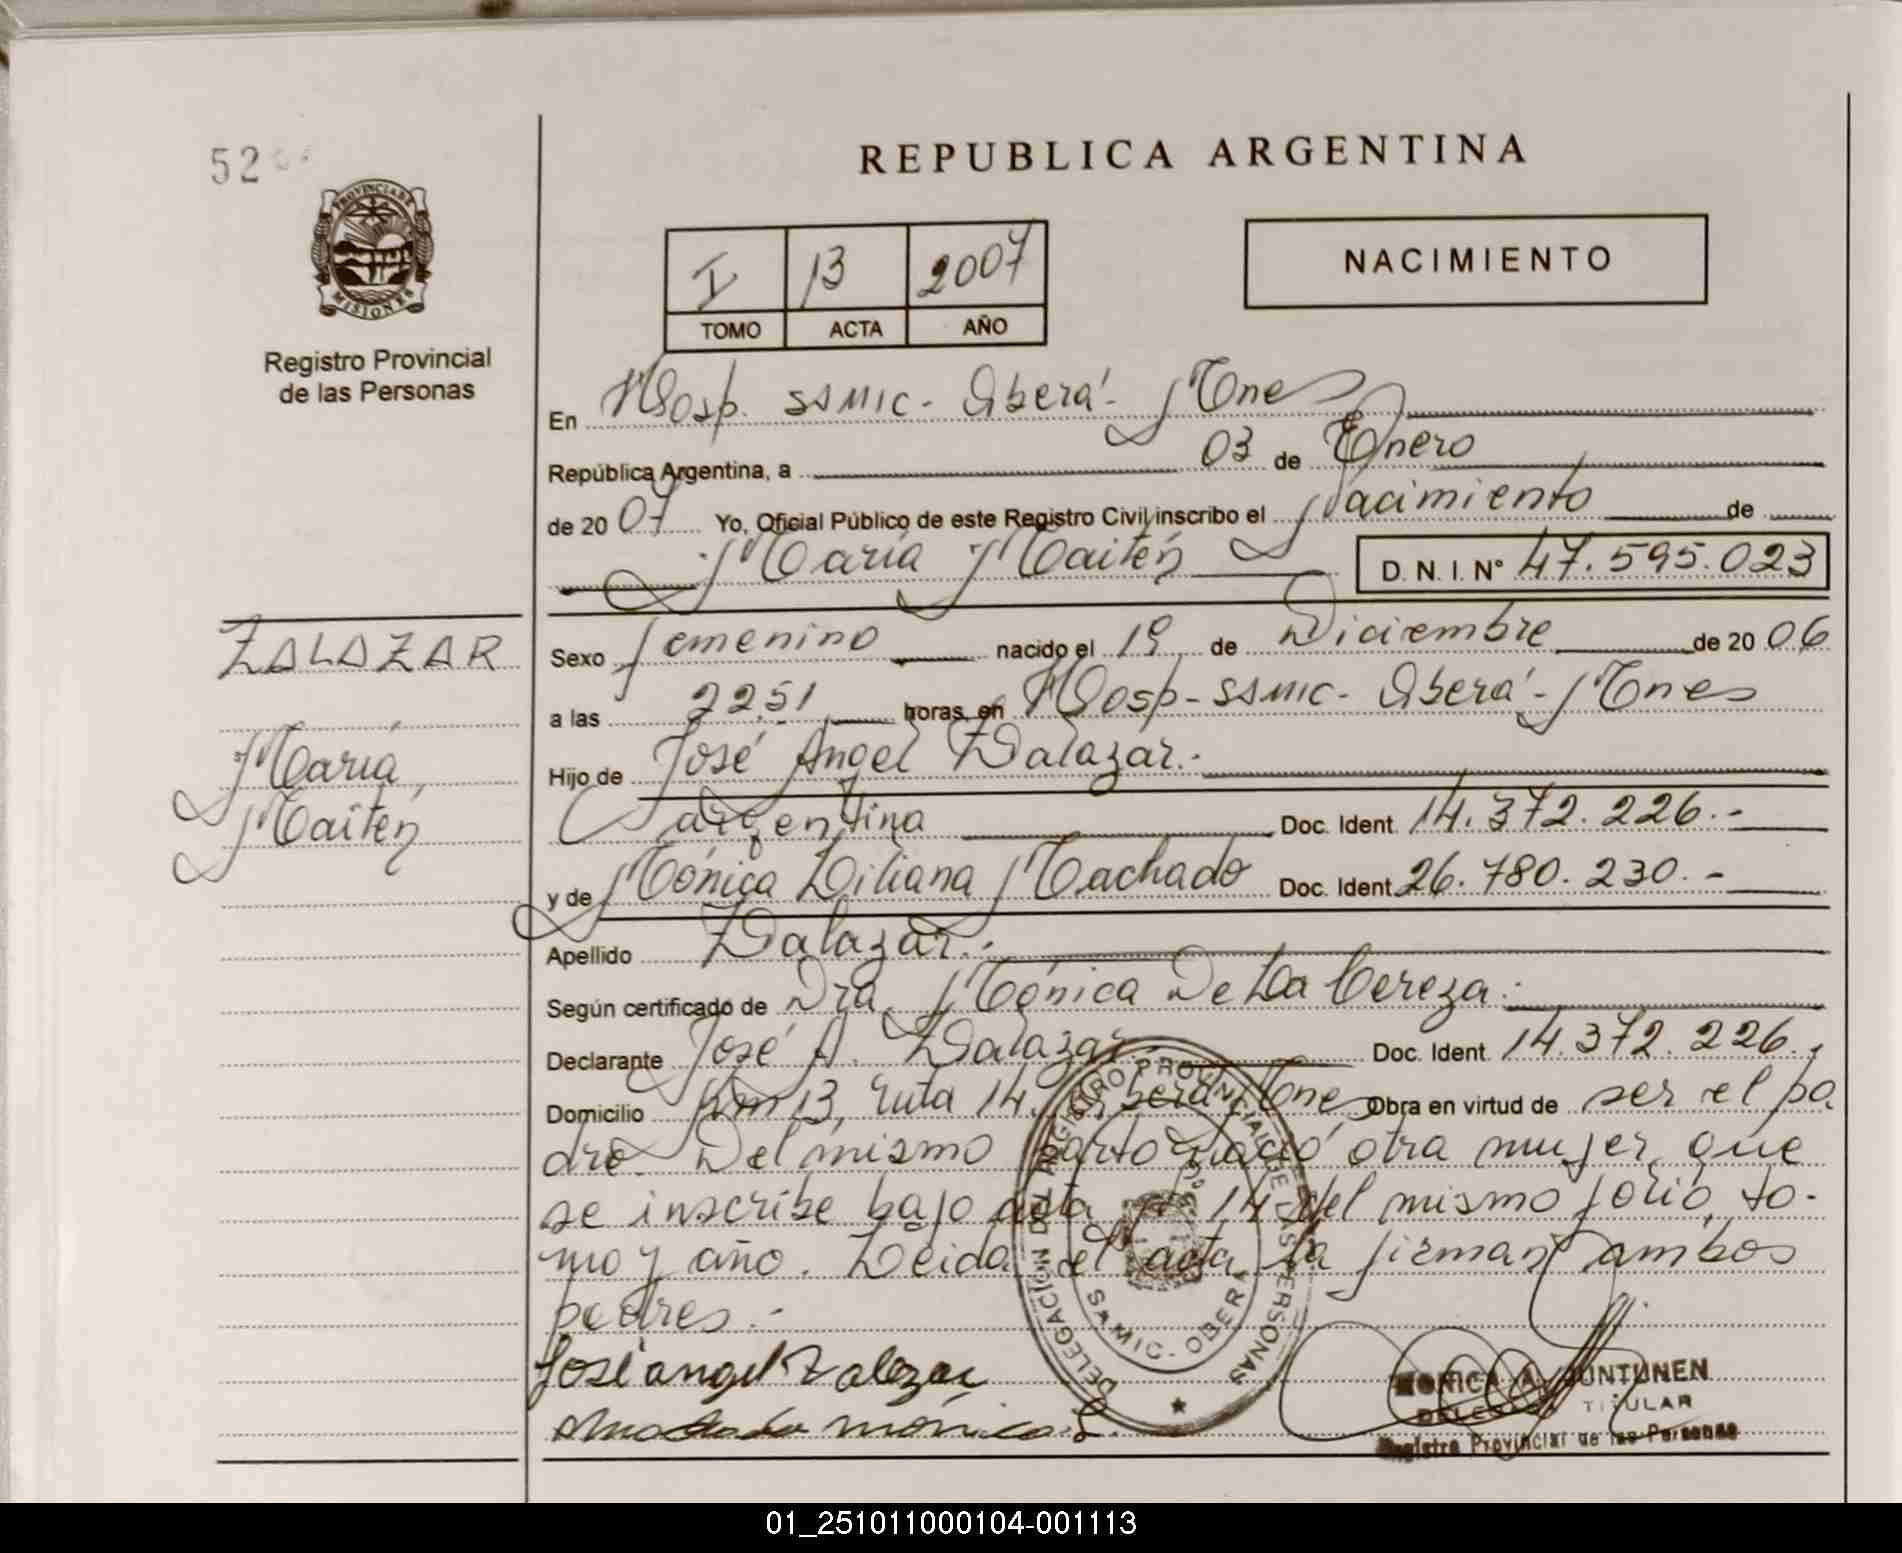 52
PROVINCIA DE
MISIONES
Registro Provincial
de las Personas
REPUBLICA ARGENTINA
I 13 2007
TOMO ACTA AÑO
NACIMIENTO
En Hosp. SAMIC - Oberá - Mnes
República Argentina, a 03 de Enero
de 2007 Yo, Oficial Público de este Registro Civil inscribo el Nacimiento de
María Maitén D. N. I. N° 47.595.023
ZALAZAR
María
Maitén
Sexo femenino nacido el 19 de Diciembre de 2006
a las 22,51 horas, en Hosp - SAMIC - Oberá - Mnes
Hijo de José Angel Zalazar.-
argentina Doc. Ident. 14.372.226.-
y de Mónica Liliana Machado Doc. Ident. 26.780.230.-
Apellido Zalazar.-
Según certificado de Dra. Mónica De La Cereza.-
Declarante José A. Zalazar Doc. Ident. 14.372.226.,
Domicilio Km 13, ruta 14, Oberá Mnes Obra en virtud de ser el pa
dre. Del mismo parto nació otra mujer, que
se inscribe bajo acta nº 14 del mismo folio, to-
mo y año. Leida el acta la firman ambos
padres.-
José angel Zalazar
Machado mónica L.
DELEGACIÓN DEL REGISTRO PROVINCIAL DE LAS PERSONAS
SAMIC - OBERA
MONICA A. JUNTUNEN
DELEGADA TITULAR
Registro Provincial de las Personas
01_251011000104-001113